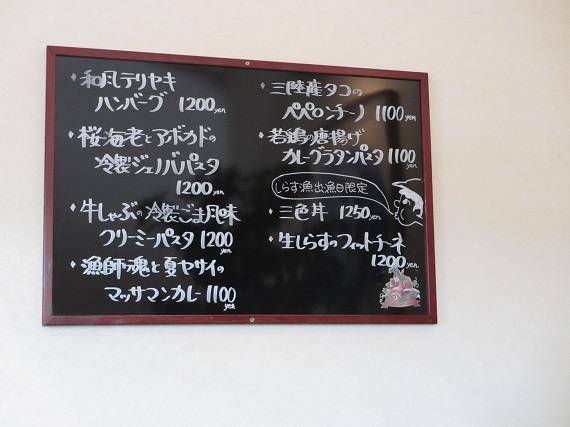 和風テリヤキ
ハンバーグ 1200yen
桜海老とアボカドの
冷製ジェノバパスタ
1200yen
牛しゃぶの冷製ごま風味
クリーミーパスタ 1200yen
漁師魂と夏ヤサイの
マッサマンカレー1100yen
三陸産タコの
ペペロンチーノ 1100yen
若鶏の唐揚げ
カレーグラタンパスタ1100yen
しらす漁出漁日限定
三色丼 1250yen
生しらすのフィットチーネ
1200yen